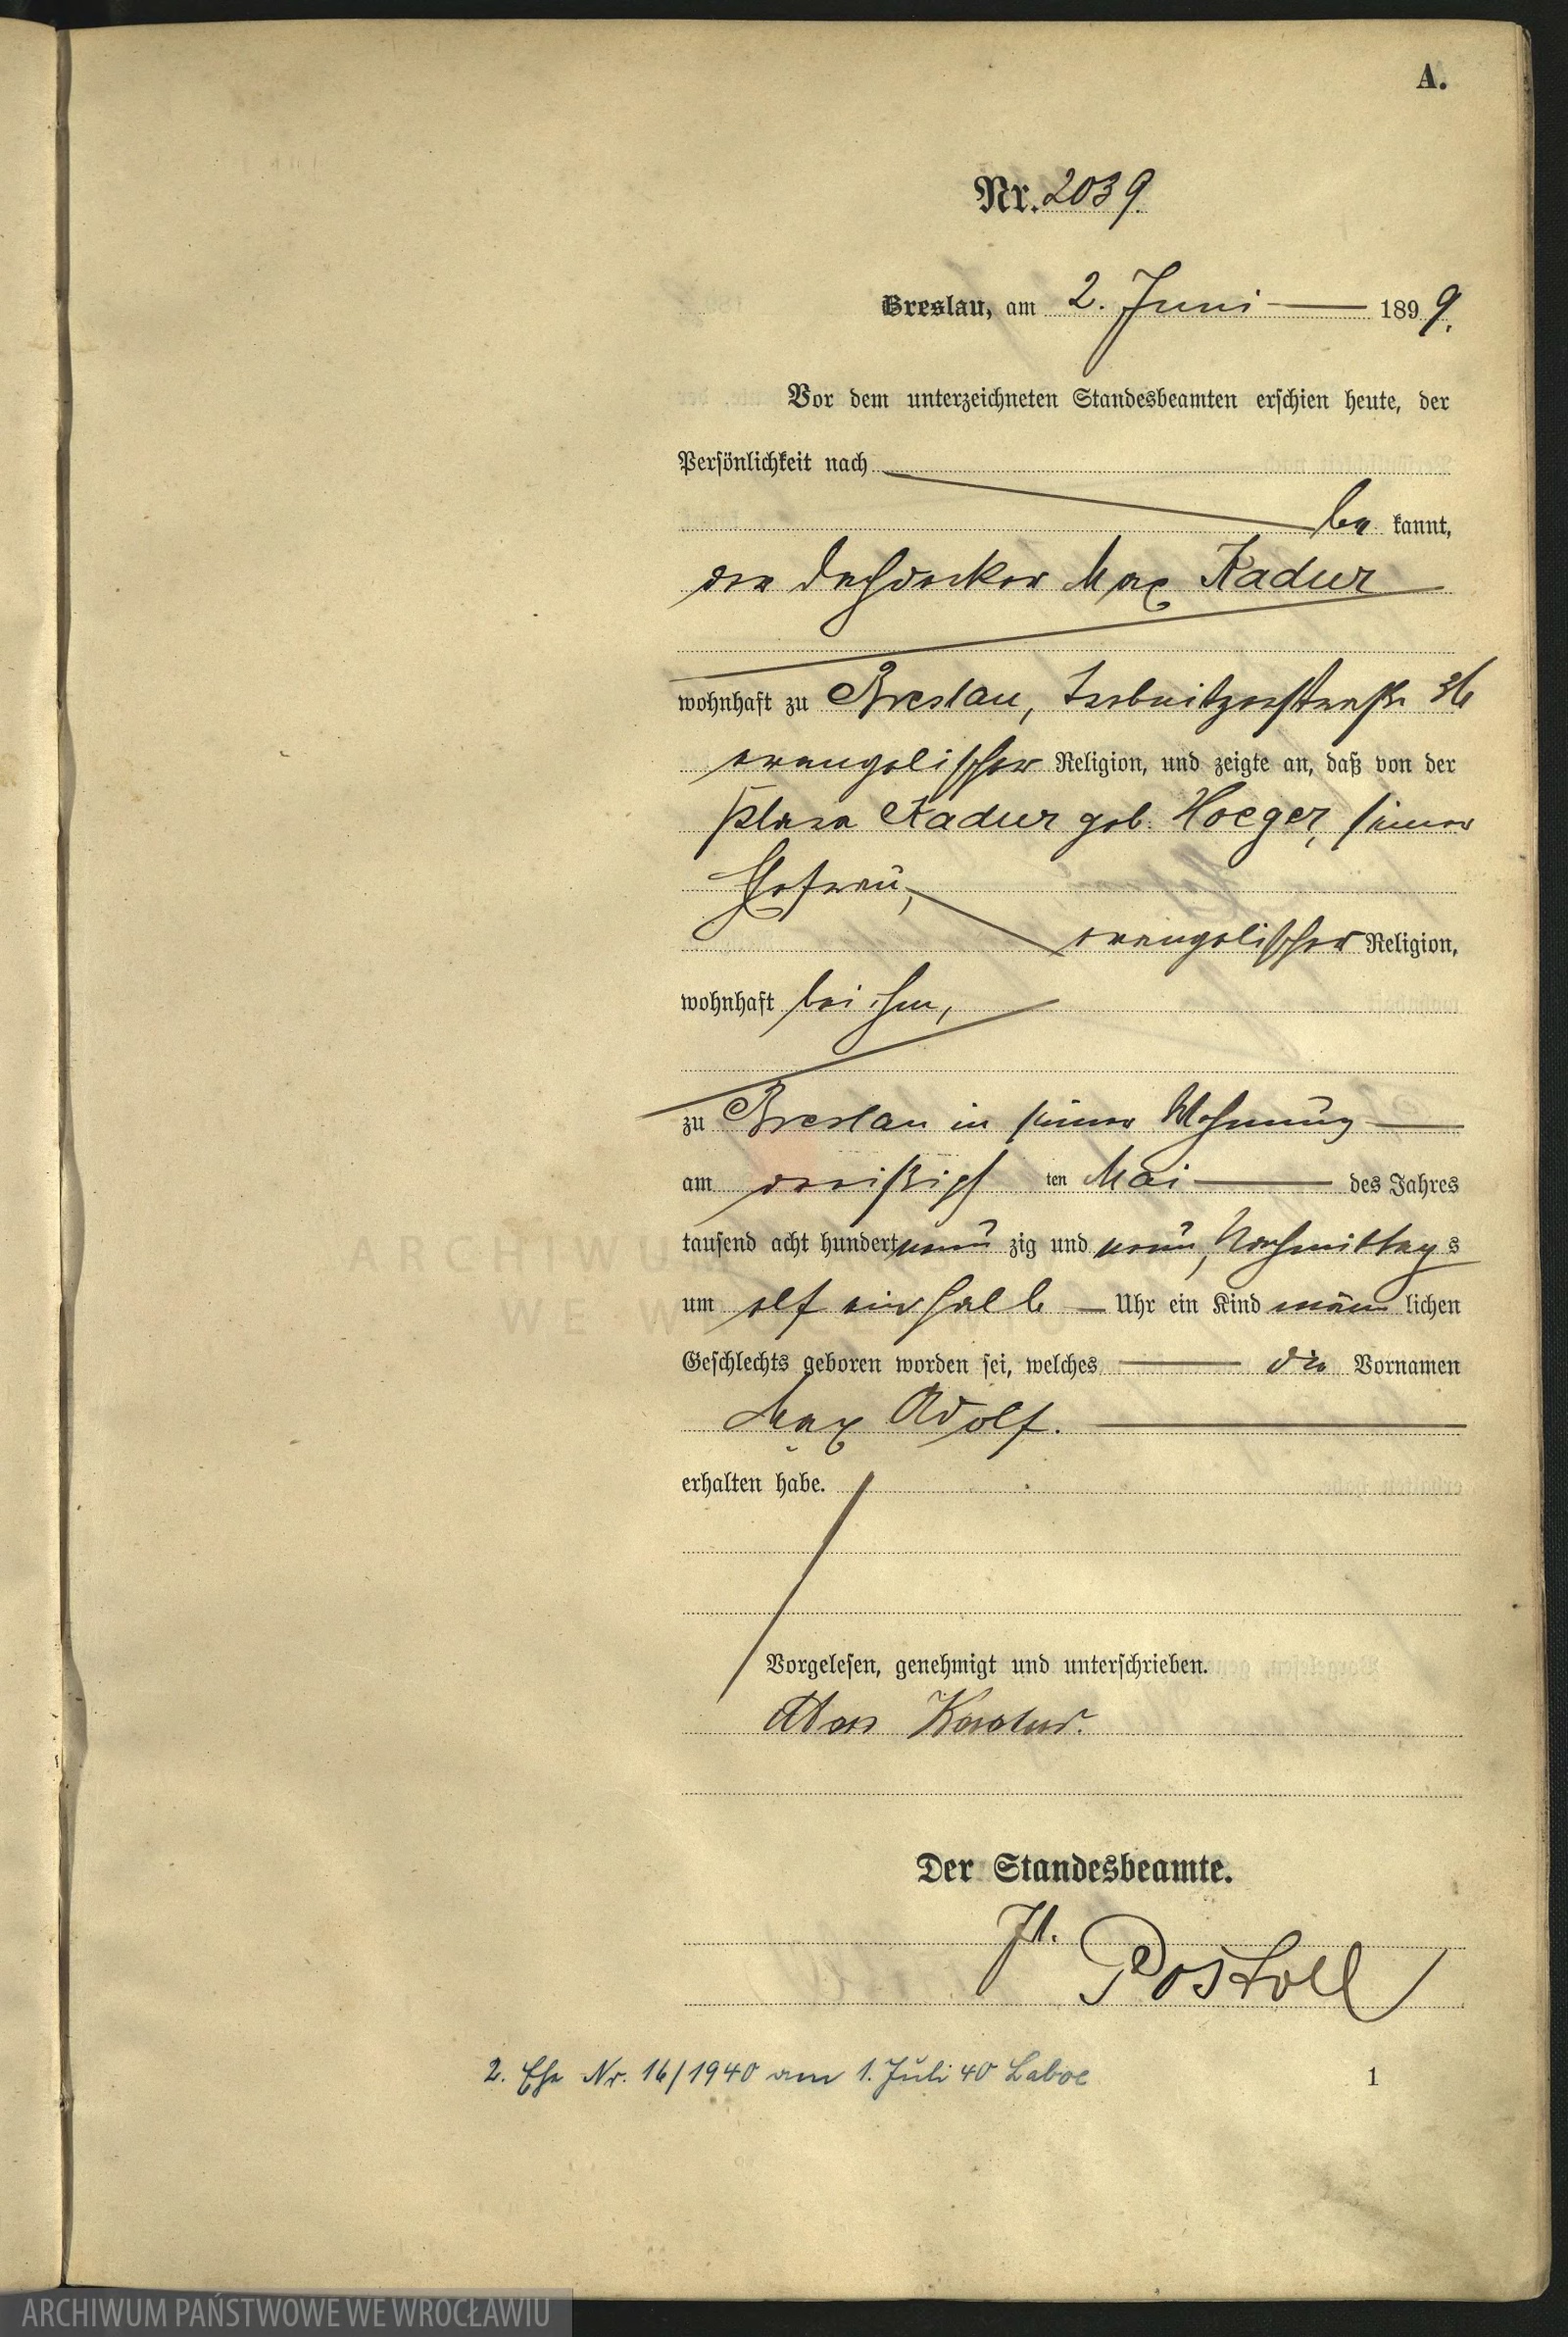 A.
Nr. 2039.
Breslau, am 2. Juni 1899.
Vor dem unterzeichneten Standesbeamten erschien heute, der
Persönlichkeit nach
be kannt,
der Dachdecker Max Kadur
wohnhaft zu Breslau, Trebnitzerstraße 36
evangelischer Religion, und zeigte an, daß von der
Klara Kadur geb. Hoeger, seiner
Ehefrau,
evangelischer Religion,
wohnhaft bei ihm,
zu Breslau in seiner Wohnung
am dreißigsten Mai des Jahres
tausend acht hundert neun zig und neun, Nachmittags
um elf einhalb Uhr ein Kind männ lichen
Geschlechts geboren worden sei, welches die Vornamen
Max Adolf.
erhalten habe.
Vorgelesen, genehmigt und unterschrieben.
Max Kadur.
Der Standesbeamte.
Postoll
2. Ehe Nr. 16/1940 am 1. Juli 40 Laboe
1
ARCHIWUM PAŃSTWOWE WE WROCŁAWIU